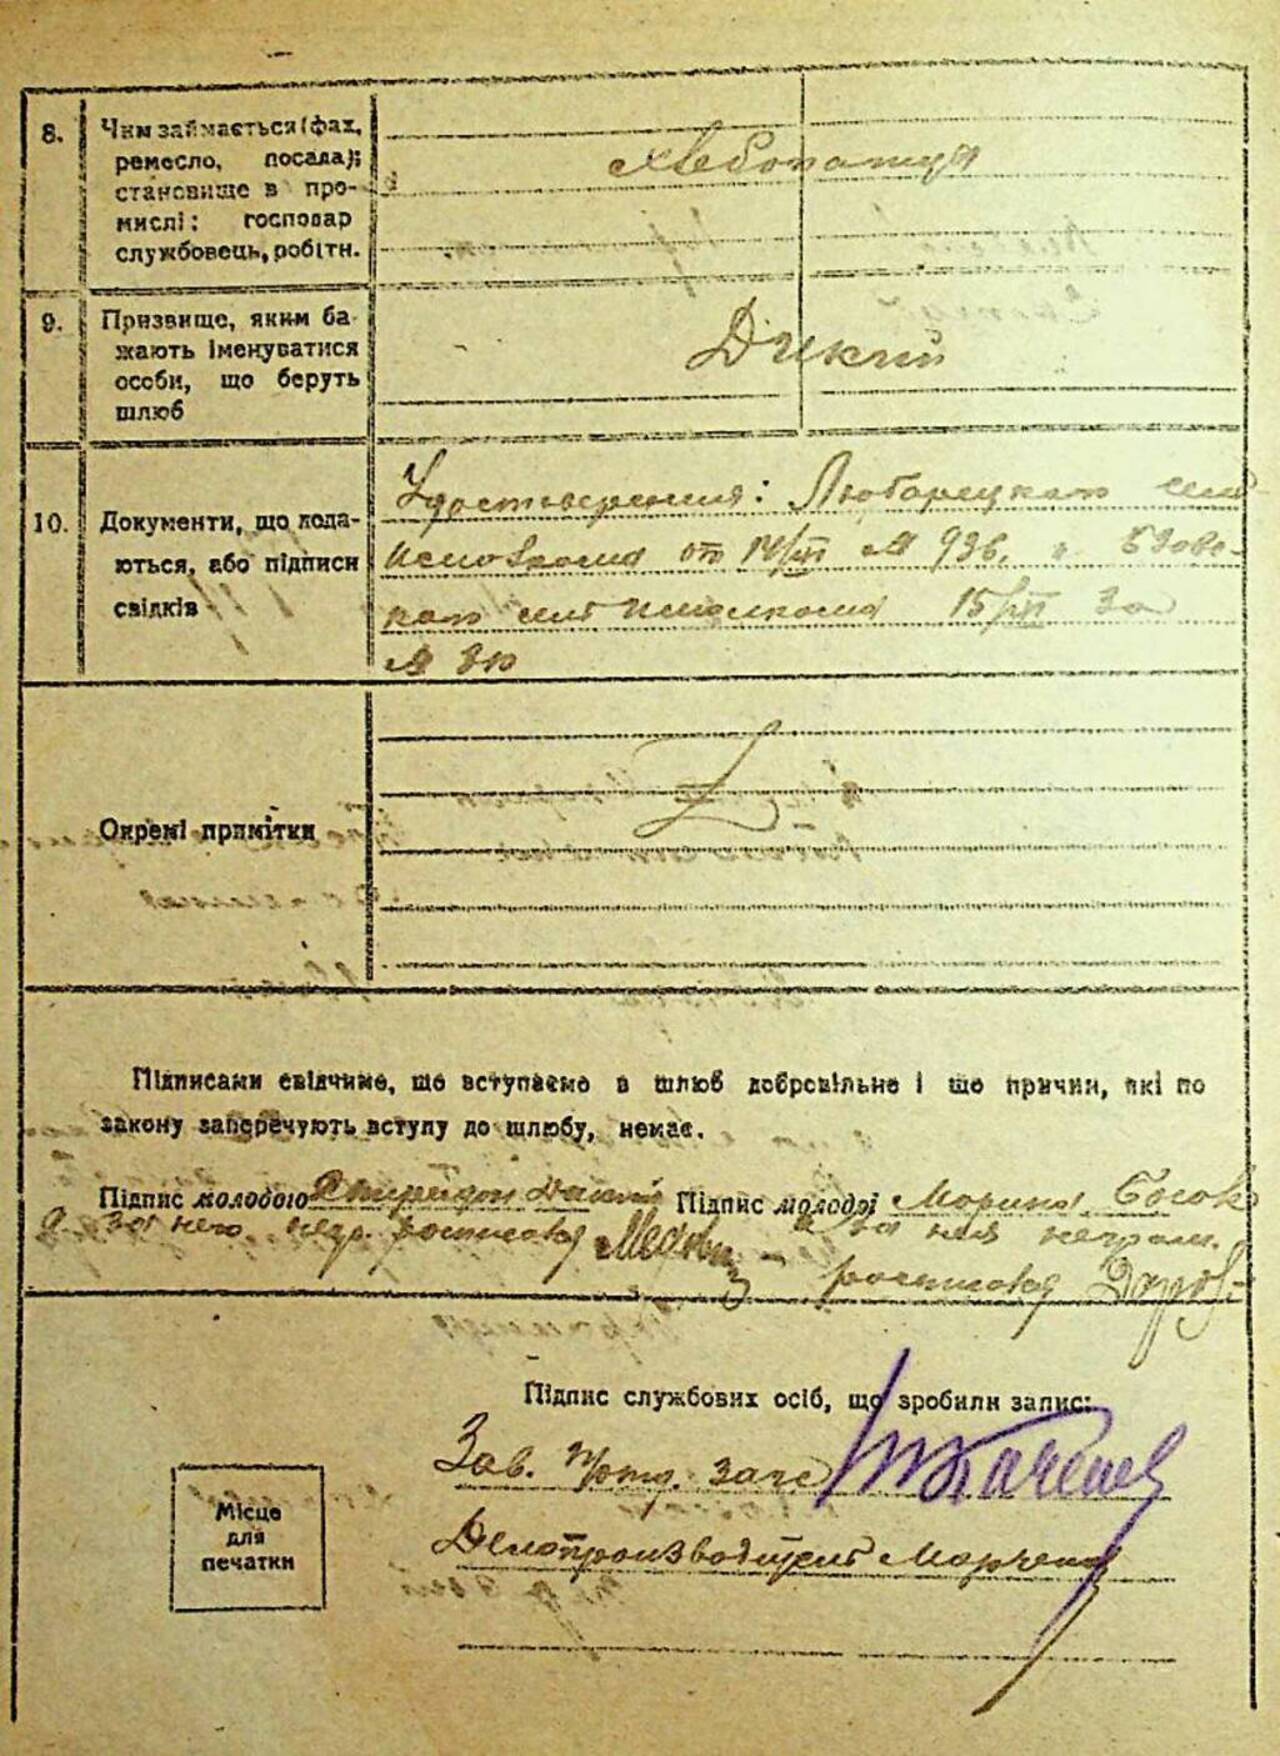 8. Чим займається (фах,
ремесло, посада);
становище в про-
мислі: господар
службовець, робітн.
хлебопашця
9. Призвище, яким ба-
жають іменуватися
особи, що беруть
шлюб
Дикий
10. Документи, що пода-
ються, або підписи
свідків
Удостоверения: Любарецкаго сель
исполкома от 14/III № 936, и
каго сель исполкома 15/III за
№
Окремі примітки
Підписами свідчимо, що вступаємо в шлюб добровільно і що причин, які по
закону заперечують вступу до шлюбу, немає.
Підпис молодого Спиридон Дикий Підпис молодої Морина
а за него негр. росписався а за нея неграм.
росписався
Підпис службових осіб, що зробили запис:
Зав. п/отд. загс Ткаченко
Делопроизводитель Марченко
Місце
для
печатки